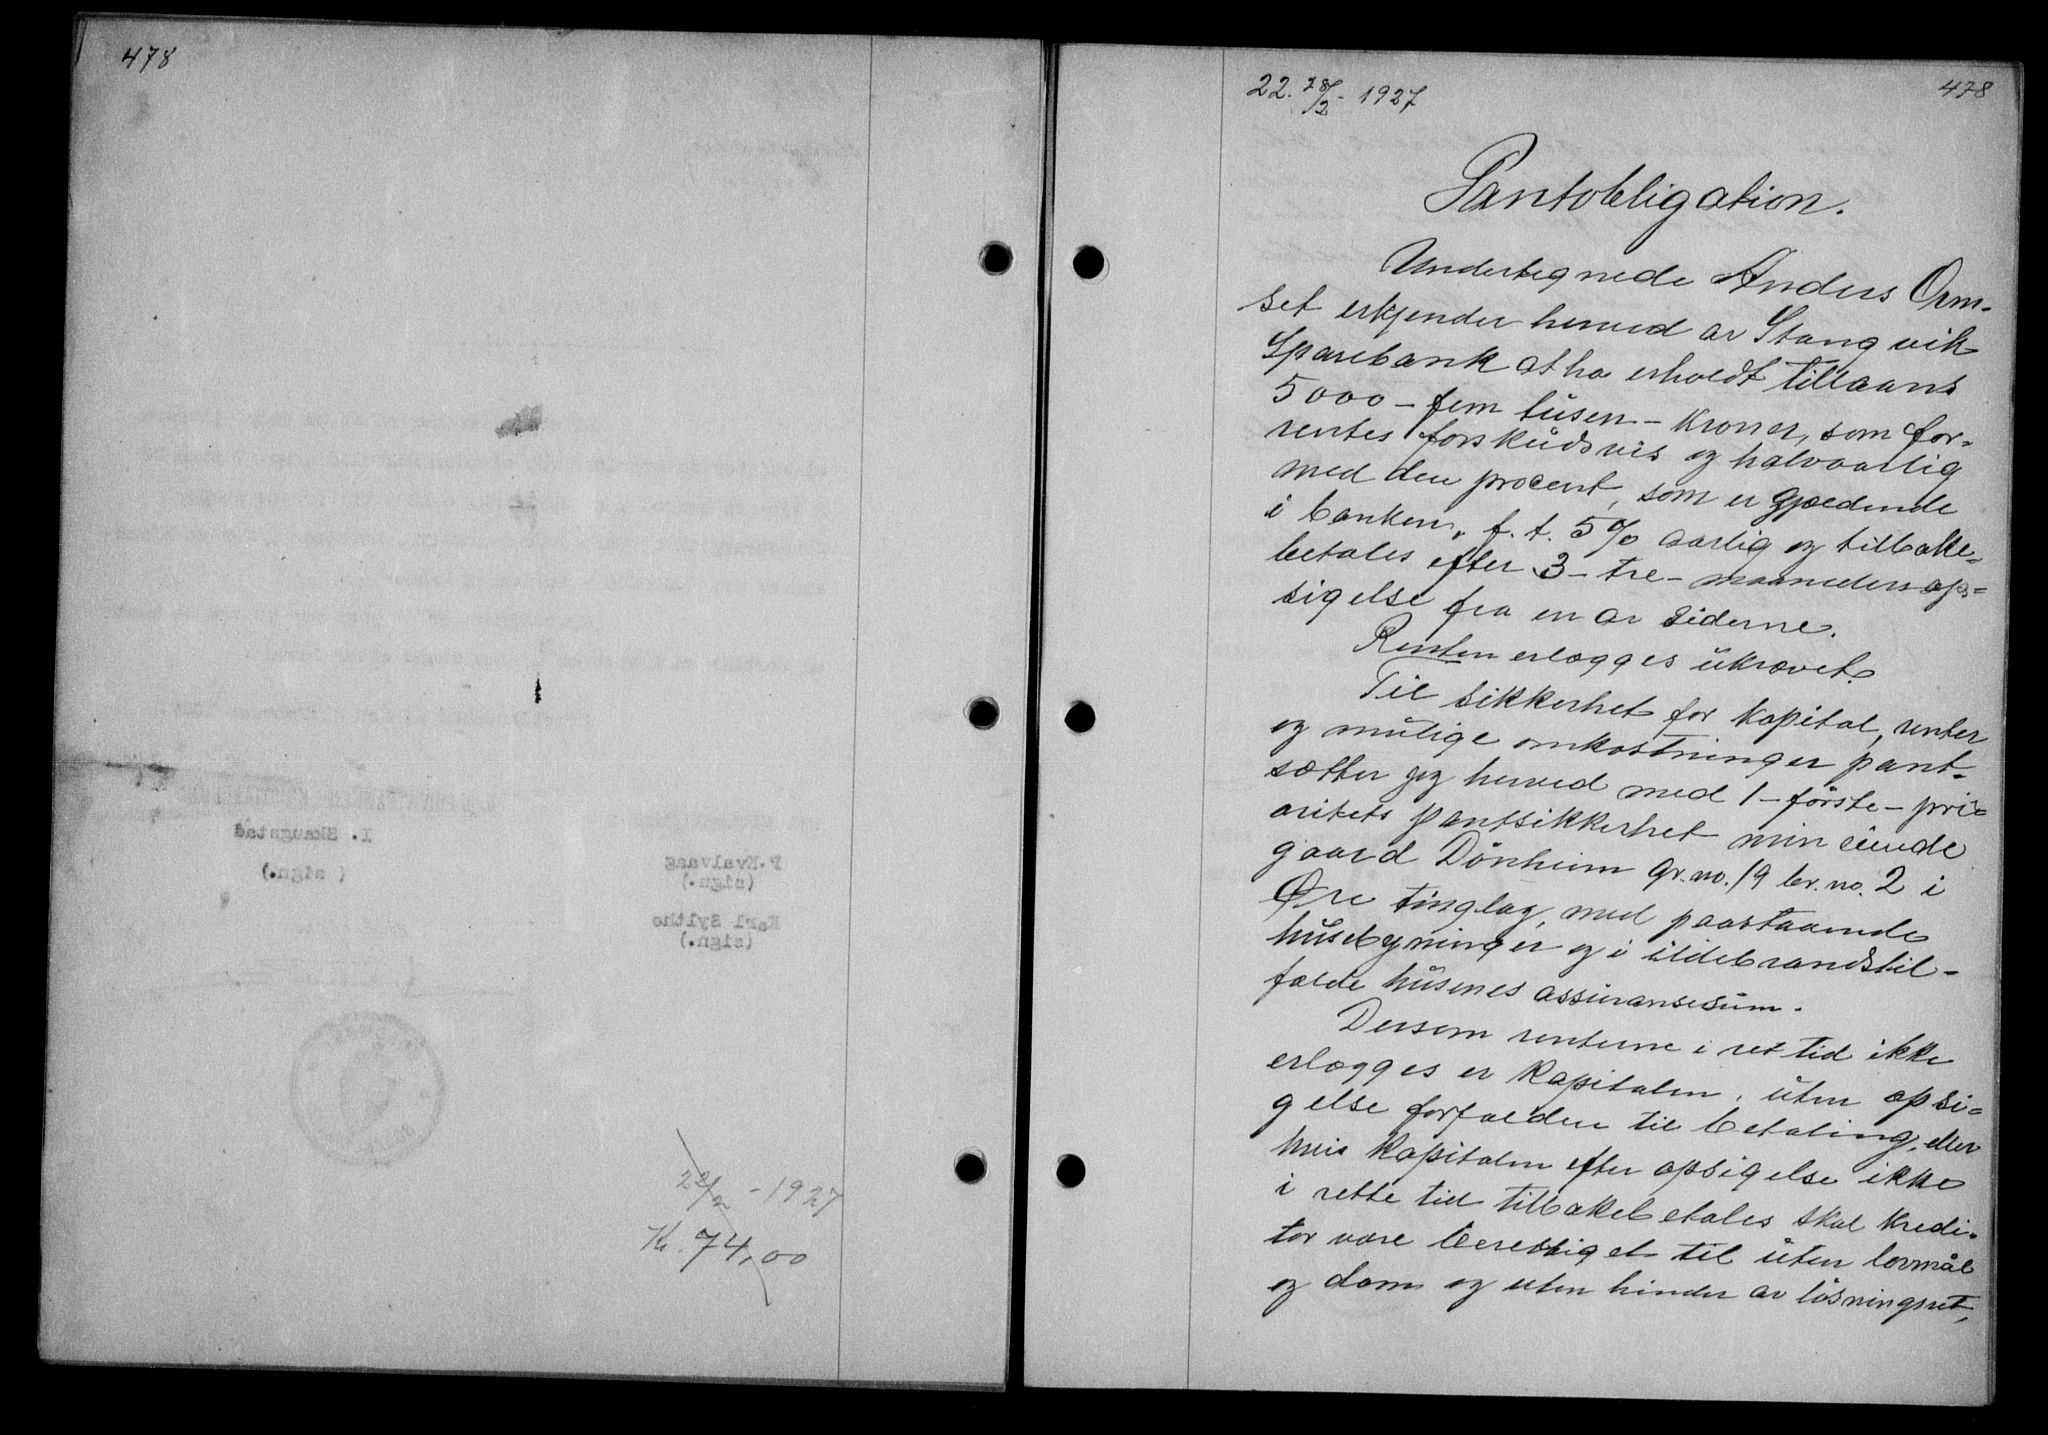 478
I. Skaugstad
( sign.)
P. Kvalvaag
(sign.)
Karl Syltho
(sign.)
22/2 - 1927
Kr. 74,00
22. 28/2 - 1927
478
Pantobligation.
Undertegnede Anders Orm-
set erkjender herved av Stangvik
Sparebank at ha erholdt tillaans
5000 - fem tusen - kroner, som for-
rentes forskudsvis og halvaarlig
med den procent, som er gjældende
i banken, f. t. 5 % aarlig og tilbake-
betales efter 3 - tre - maaneders op-
sigelse fra en av siderne.
Renten erlægges ukrævet.
Til sikkerhet for kapital, renter
og mulige omkostninger pant-
sætter jeg herved med 1 - første - pri-
oritets pantsikkerhet min eiende
gaard Dønheim gr. no. 19 br. no. 2 i
Øre tinglag, med paastaaende
husebygninger og i ildebrandstil-
fælde husenes assuransesum.
Dersom renterne i ret tid ikke
erlægges er kapitalen, uten opsi-
gelse forfalden til betaling, eller
hvis kapitalen efter opsigelse ikke
i rette tid tilbakebetales skal kredi-
tor være berettiget til uten lovmål
og dom og uten hinder av løsningsret,